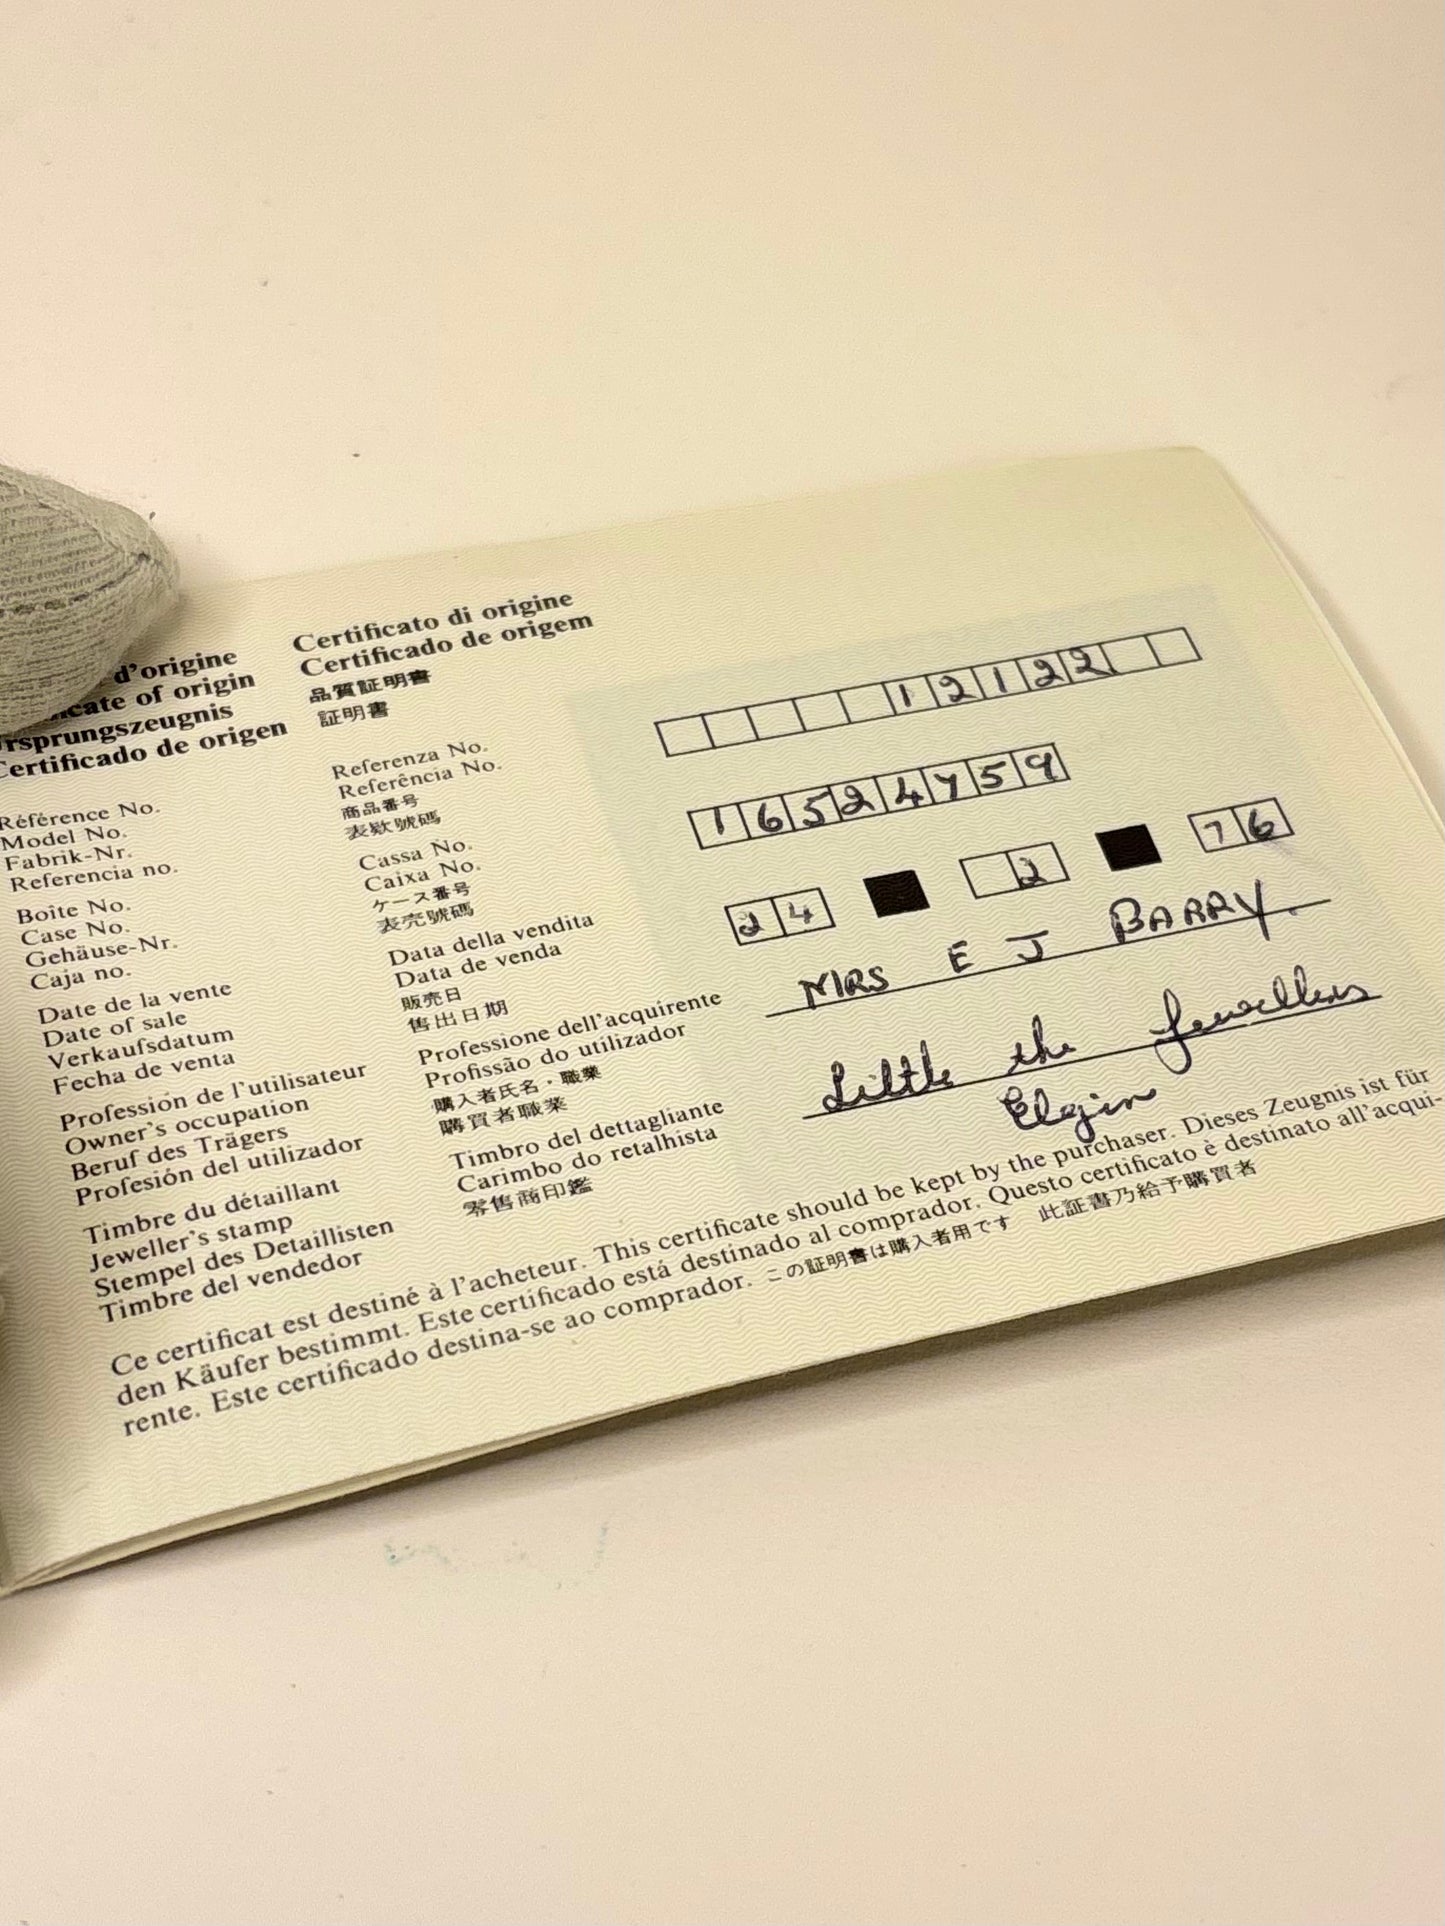 d'origine
cate of origin
rsprungszeugnis
Certificado de origen
Certificato di origine
Certificado de origem
品質証明書
証明書
Référence No.
Model No.
Fabrik-Nr.
Referencia no.
Referenza No.
Referência No.
商品番号
表欵號碼
12122
Boîte No.
Case No.
Gehäuse-Nr.
Caja no.
Cassa No.
Caixa No.
ケース番号
表壳號碼
16524759
Date de la vente
Date of sale
Verkaufsdatum
Fecha de venta
Data della vendita
Data de venda
販売日
售出日期
24 2 76
Profession de l'utilisateur
Owner's occupation
Beruf des Trägers
Profesión del utilizador
Professione dell'acquirente
Profissão do utilizador
購入者氏名・職業
購買者職業
MRS E J BARRY.
Timbre du détaillant
Jeweller's stamp
Stempel des Detaillisten
Timbre del vendedor
Timbro del dettagliante
Carimbo do retalhista
零售商印鑑
Little the Jewellers
Elgin
Ce certificat est destiné à l'acheteur. This certificate should be kept by the purchaser. Dieses Zeugnis ist für
den Käufer bestimmt. Este certificado está destinado al comprador. Questo certificato è destinato all'acqui-
rente. Este certificado destina-se ao comprador. この証明書は購入者用です 此証書乃給予購買者